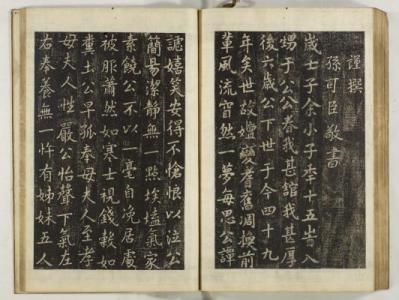 謹撰
孫可臣敬書
歲壬子余小子李十五歲入
甥于公公眷我甚舘我甚厚
後六歲公下世于今四十九
年矣世故嬗變耆舊凋換前
輩風流窅然一夢每思公譚
謔嬉笑安得不愴恨以泣公
簡易潔靜無一點埃𡏖氣家
素饒公不以一毫自浼居處
被服蕭然如寒士視錢穀如
糞土公早孤奉母夫人至孝
母夫人性嚴公怡聲下氣左
右奉養無一忤有姊妹五人